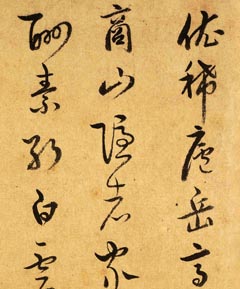 依稀廬岳高
商山隱者家
酬素外白雲